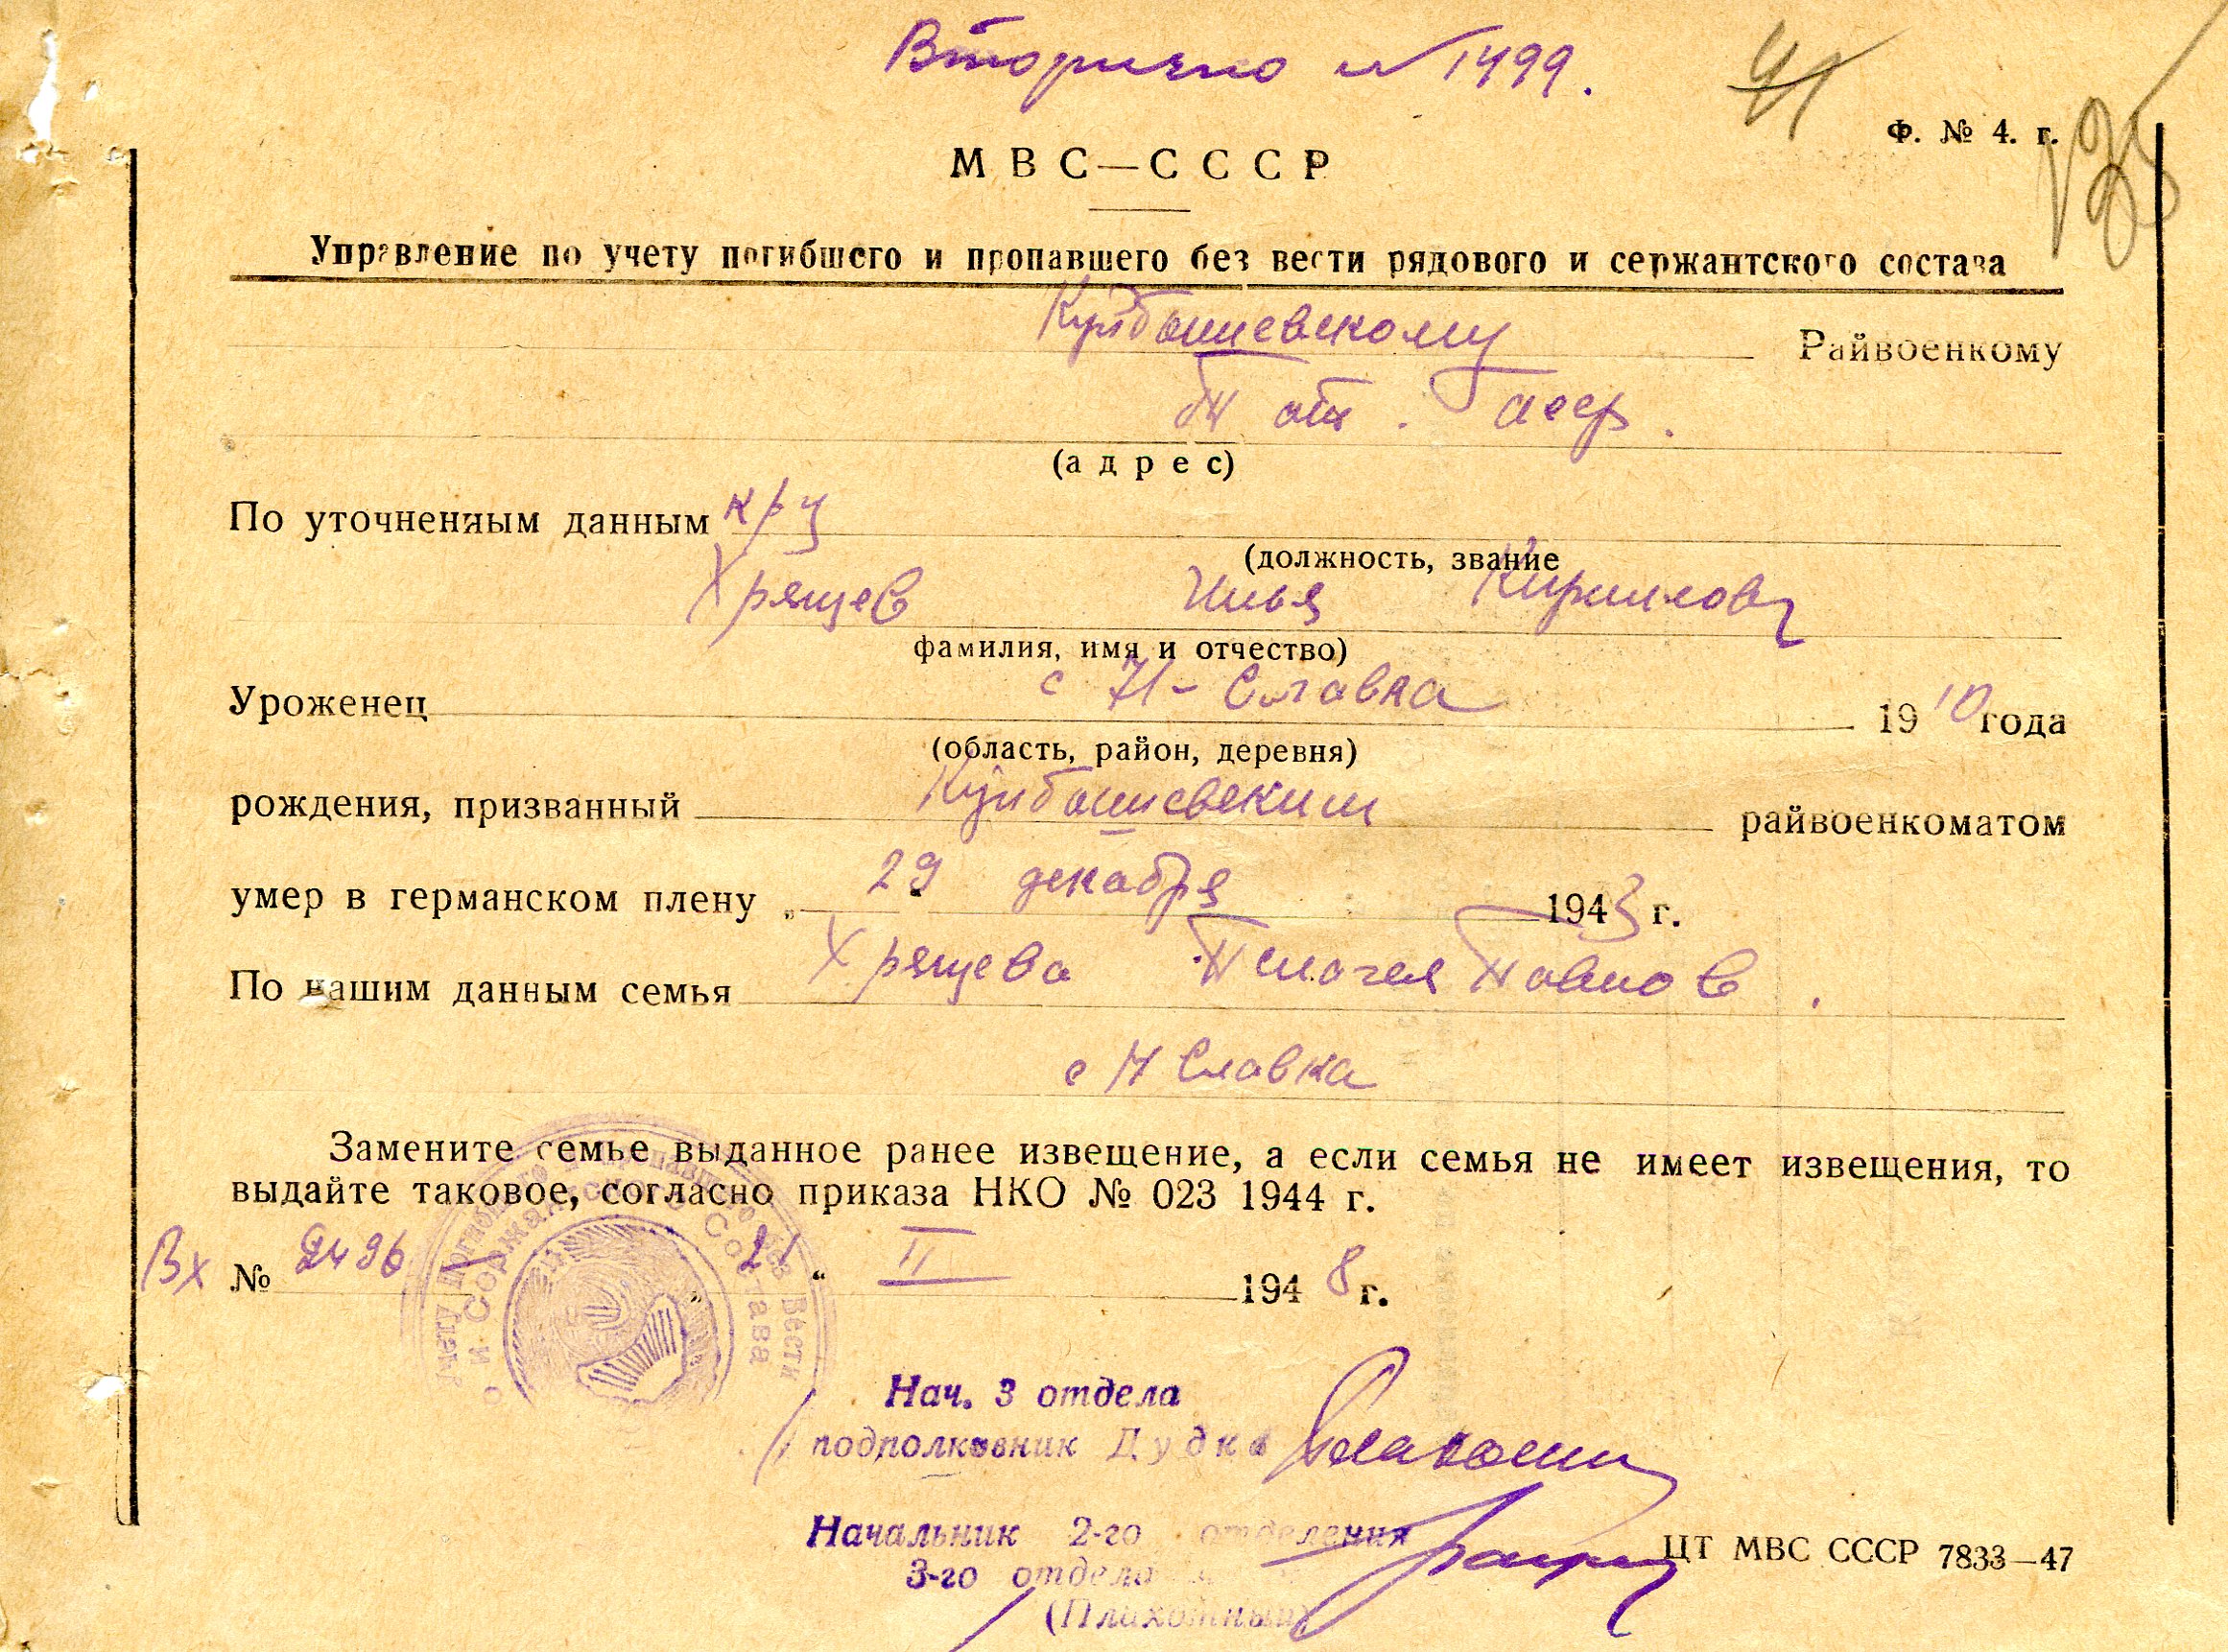 Вторично № 1499.
41
Ф. № 4. г.
МВС—СССР
Управление по учету погибшего и пропавшего без вести рядового и сержантского состава
Куйбышевскому Райвоенкому
Тат. АССР.
(адрес)
По уточненным данным кр-ц
(должность, звание
Хрящев Илья Кириллов
фамилия, имя и отчество)
Уроженец с Н-Славка 1910 года
(область, район, деревня)
рождения, призванный Куйбышевским райвоенкоматом
умер в германском плену „ 29 декабря 1943 г.
По нашим данным семья Хрящева Пелагея Павлов.
с Н Славка
Замените семье выданное ранее извещение, а если семья не имеет извещения, то
выдайте таковое, согласно приказа НКО № 023 1944 г.
Вх № 2496 „ 21 “ II 1948 г.
Нач. 3 отдела
подполковник Дудка
Начальник 2-го отделения
3-го отдела
(Плахотный)
ЦТ МВС СССР 7833—47